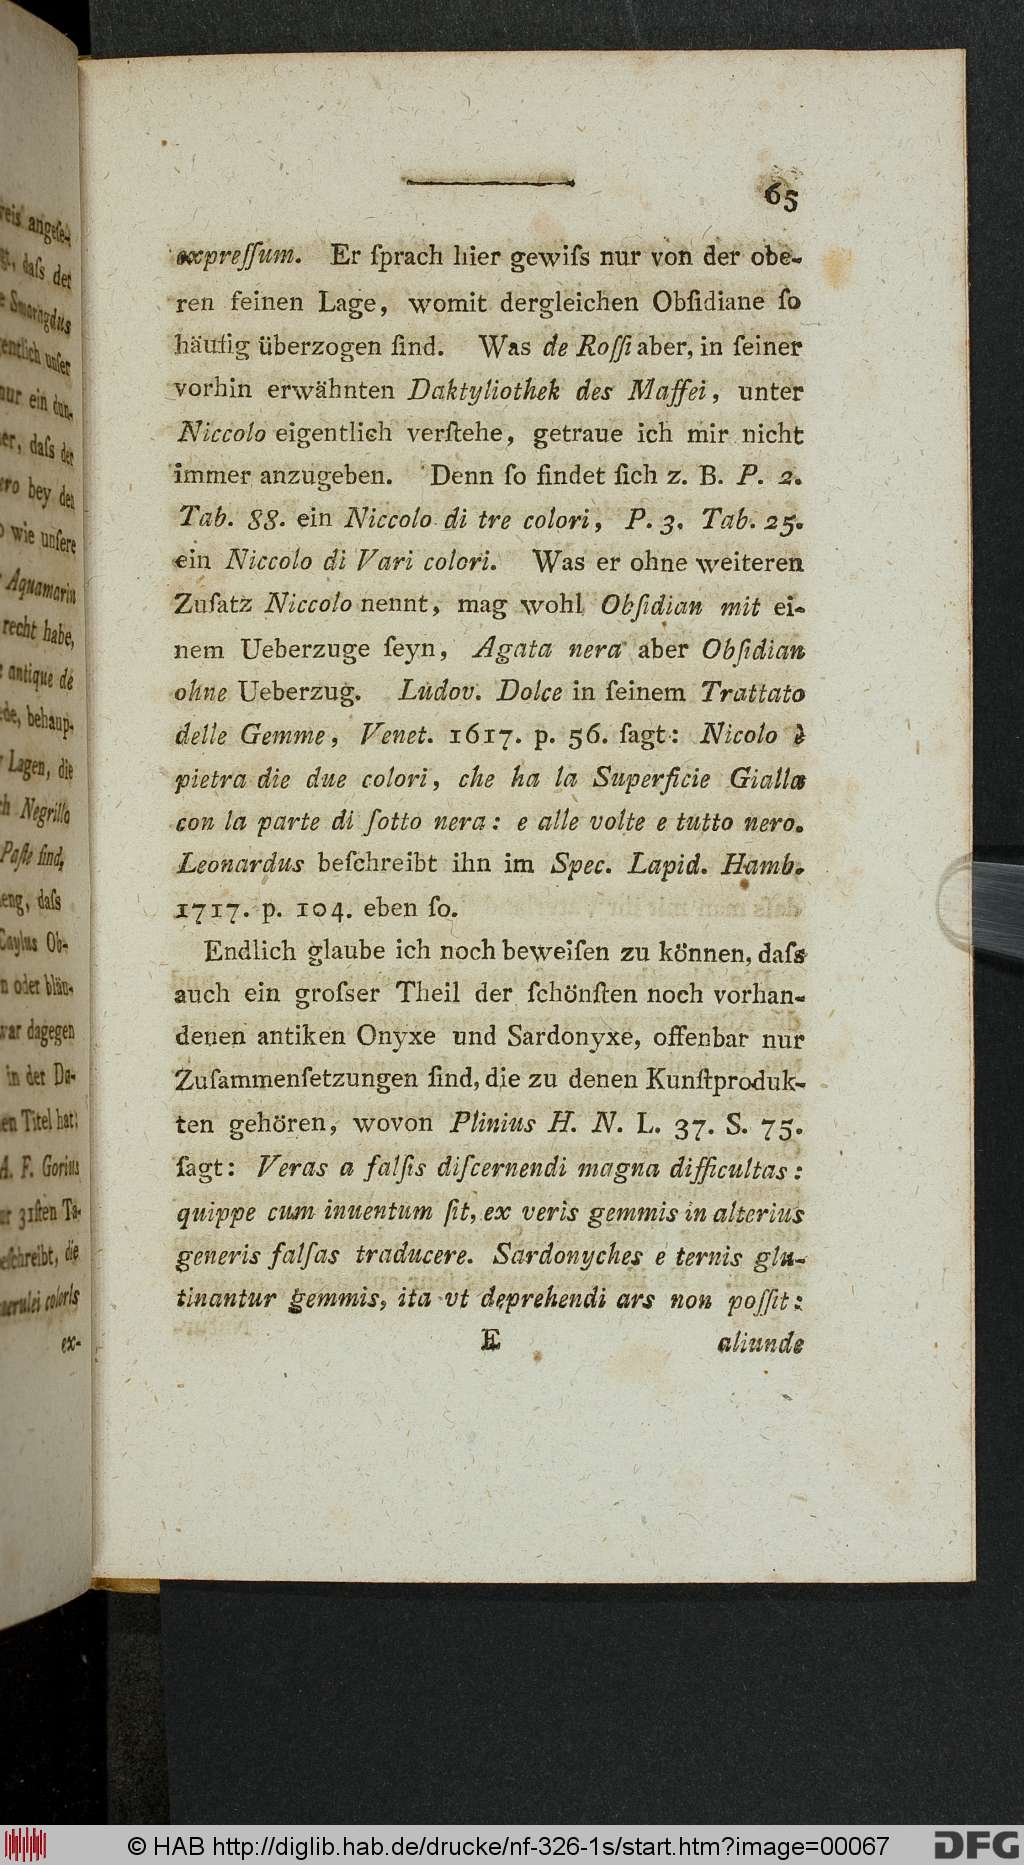 65
expreſſum. Er ſprach hier gewiſs nur von der obe-
ren feinen Lage, womit dergleichen Obſidiane ſo
häufig überzogen ſind. Was de Roſſi aber, in ſeiner
vorhin erwähnten Daktyliothek des Maffei, unter
Niccolo eigentlich verſtehe, getraue ich mir nicht
immer anzugeben. Denn ſo findet ſich z. B. P. 2.
Tab. 88. ein Niccolo di tre colori, P. 3. Tab. 25.
ein Niccolo di Vari colori. Was er ohne weiteren
Zuſatz Niccolo nennt, mag wohl Obſidian mit ei-
nem Ueberzuge ſeyn, Agata nera aber Obſidian
ohne Ueberzug. Ludov. Dolce in ſeinem Trattato
delle Gemme, Venet. 1617. p. 56. ſagt: Nicolo è
pietra die due colori, che ha la Superficie Gialla
con la parte di ſotto nera: e alle volte e tutto nero.
Leonardus beſchreibt ihn im Spec. Lapid. Hamb.
1717. p. 104. eben ſo.
Endlich glaube ich noch beweiſen zu können, daſs
auch ein groſser Theil der ſchönſten noch vorhan-
denen antiken Onyxe und Sardonyxe, offenbar nur
Zuſammenſetzungen ſind, die zu denen Kunſtproduk-
ten gehören, wovon Plinius H. N. L. 37. S. 75.
ſagt: Veras a falſis diſcernendi magna difficultas:
quippe cum inuentum ſit, ex veris gemmis in alterius
generis falſas traducere. Sardonyches e ternis glu-
tinantur gemmis, ita vt deprehendi ars non poſſit:
E aliunde
angeſe-
daſs der
Smaragdus
unſer
nur ein dun-
daſs der
bey den
wie unſere
Aquamarin
recht habe,
antique de
behaup-
Lagen, die
Negrillo
Paſte ſind,
daſs
Caylus Ob-
oder bläu-
dagegen
in der Da-
Titel hat:
A. F. Gorius
31ſten Ta-
die
coloris
ex-
© HAB http://diglib.hab.de/drucke/nf-326-1s/start.htm?image=00067
DFG